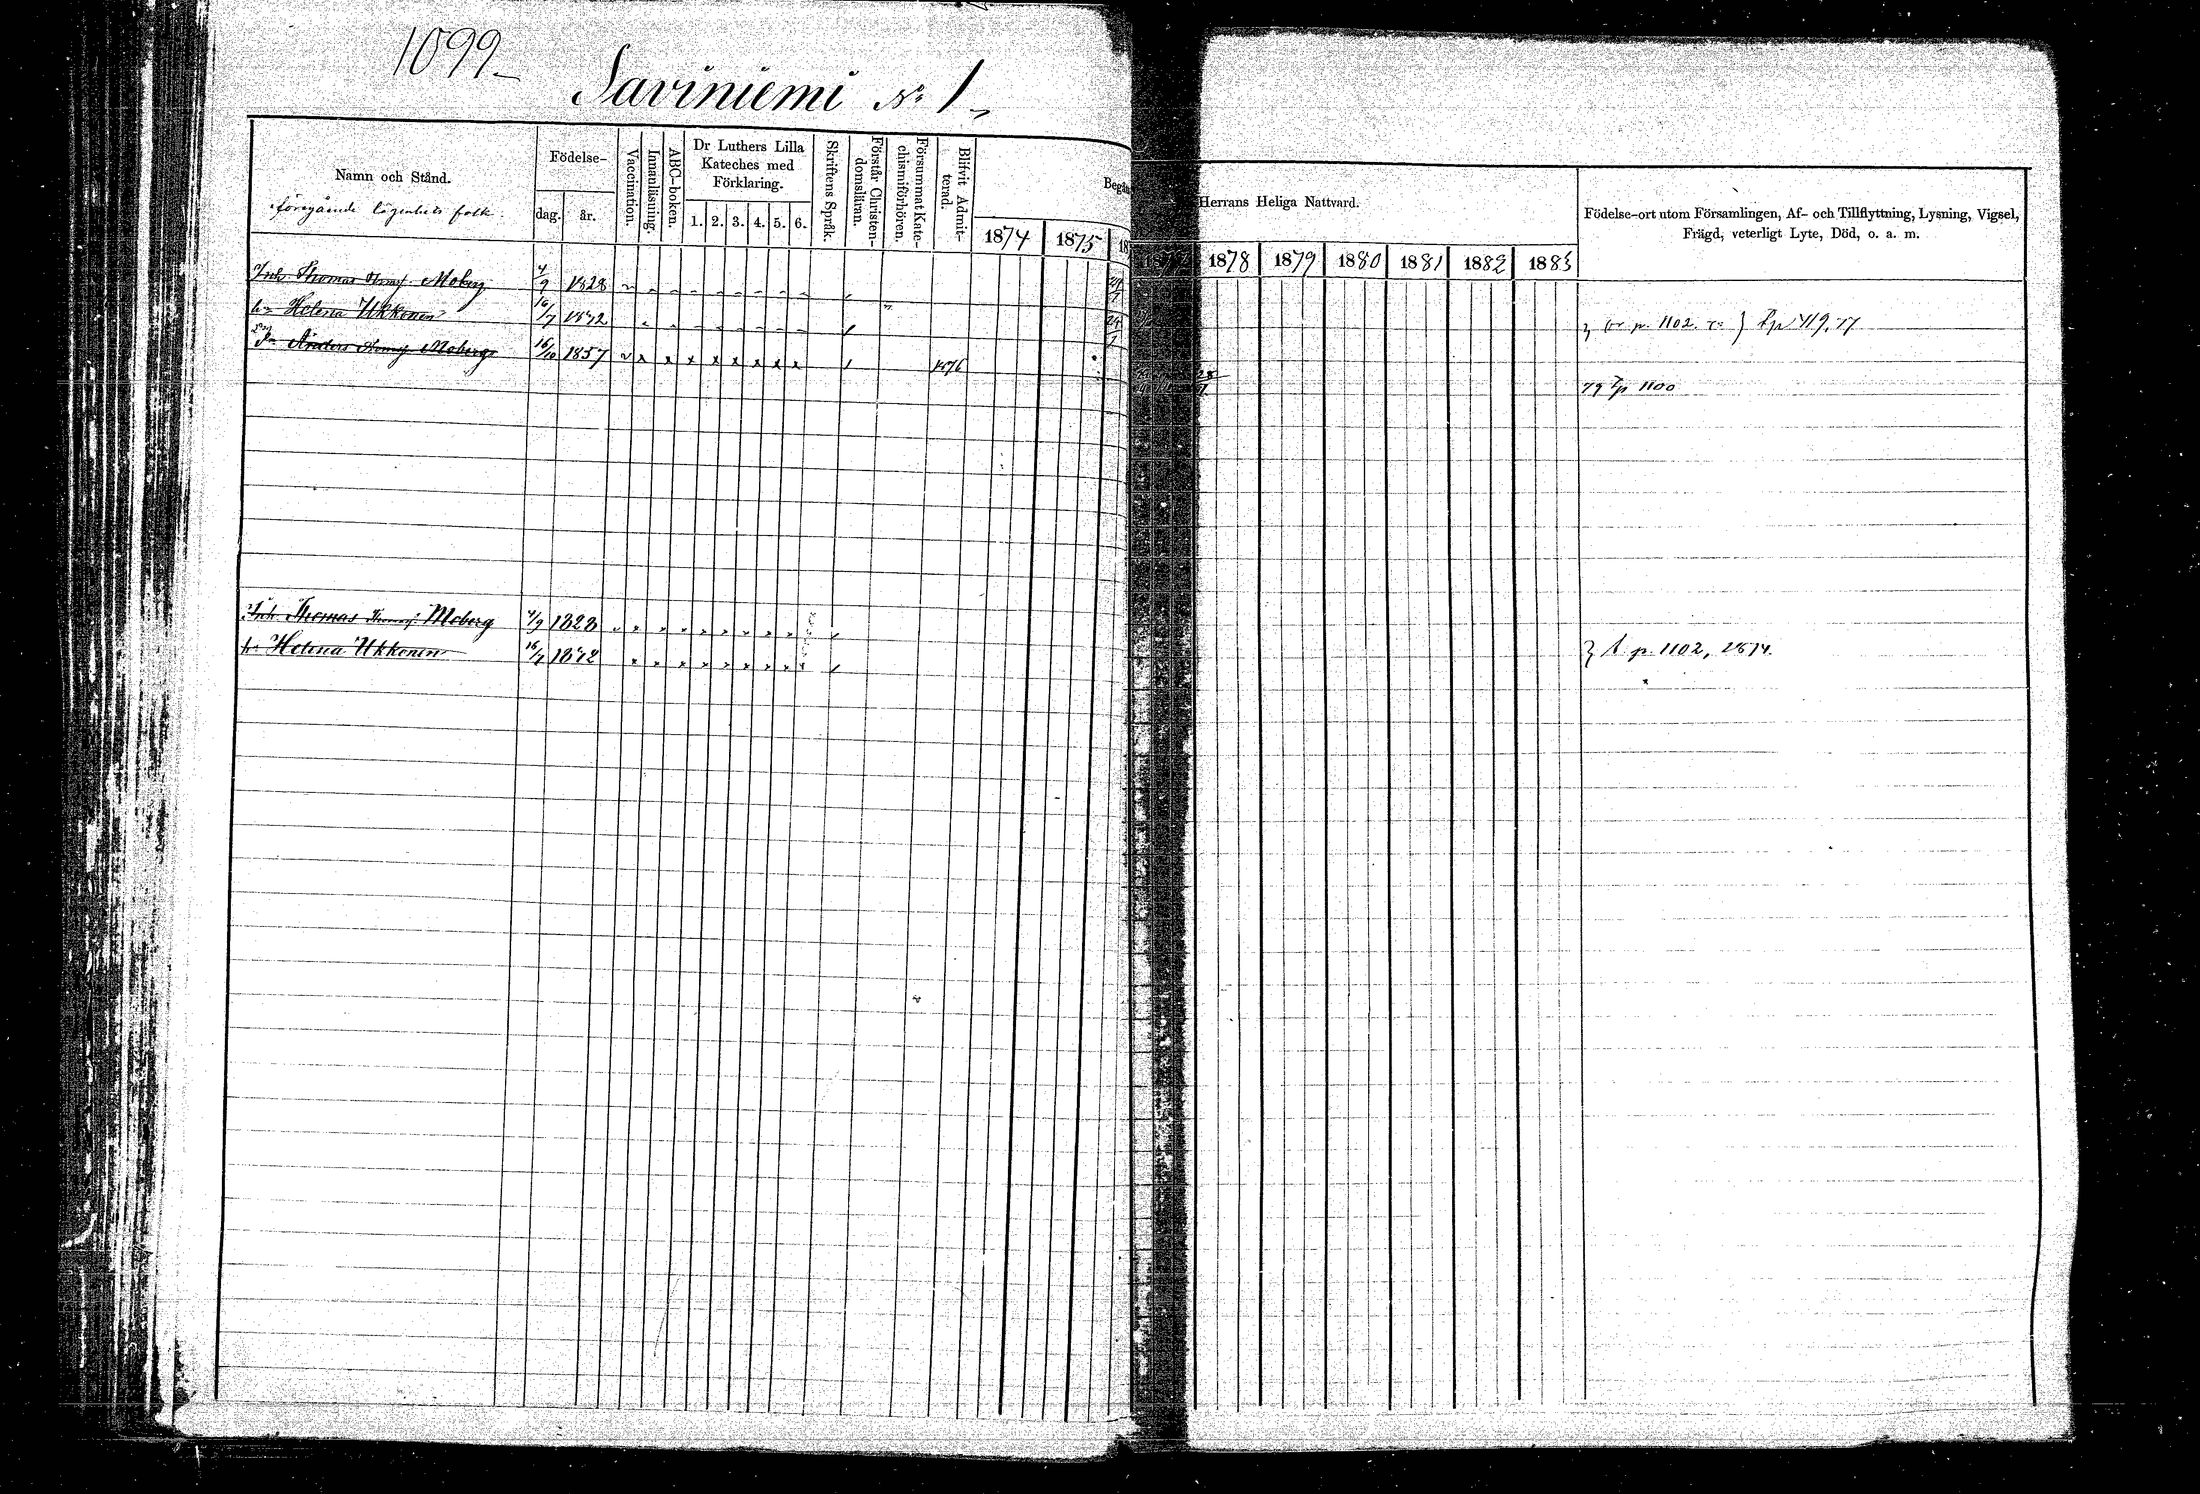 1099
Saviniemi No 1
Namn och Stånd.
föregående lägenhets folk.
Födelse-
dag.
år.
Vaccination.
Innanläsning.
ABC-boken.
Dr Luthers Lilla
Kateches med
Förklaring.
1. 2. 3. 4. 5. 6.
Skriftens Språk.
Förstår Christen-
domsläran.
Försummat Kate-
chismiförhören.
Blifvit Admit-
terad.
Begån
Herrans Heliga Nattvard.
1874 1875 18
1878 1879 1880 1881 1882 1883
Födelse-ort utom Församlingen, Af- och Tillflyttning, Lysning, Vigsel,
Frägd, veterligt Lyte, Död, o. a. m.
Inh. Thomas Thomsf. Moberg 4/9 1828
h. Helena Ukkonen 16/7 1842
p. 1102
Anders Thomsf. Moberg 16/10 1857 1876
28
79 Tp 1100
Inh. Thomas Thomsf. Moberg 4/9 1828
h. Helena Ukkonen 16/7 1842
p. 1102, 1874.